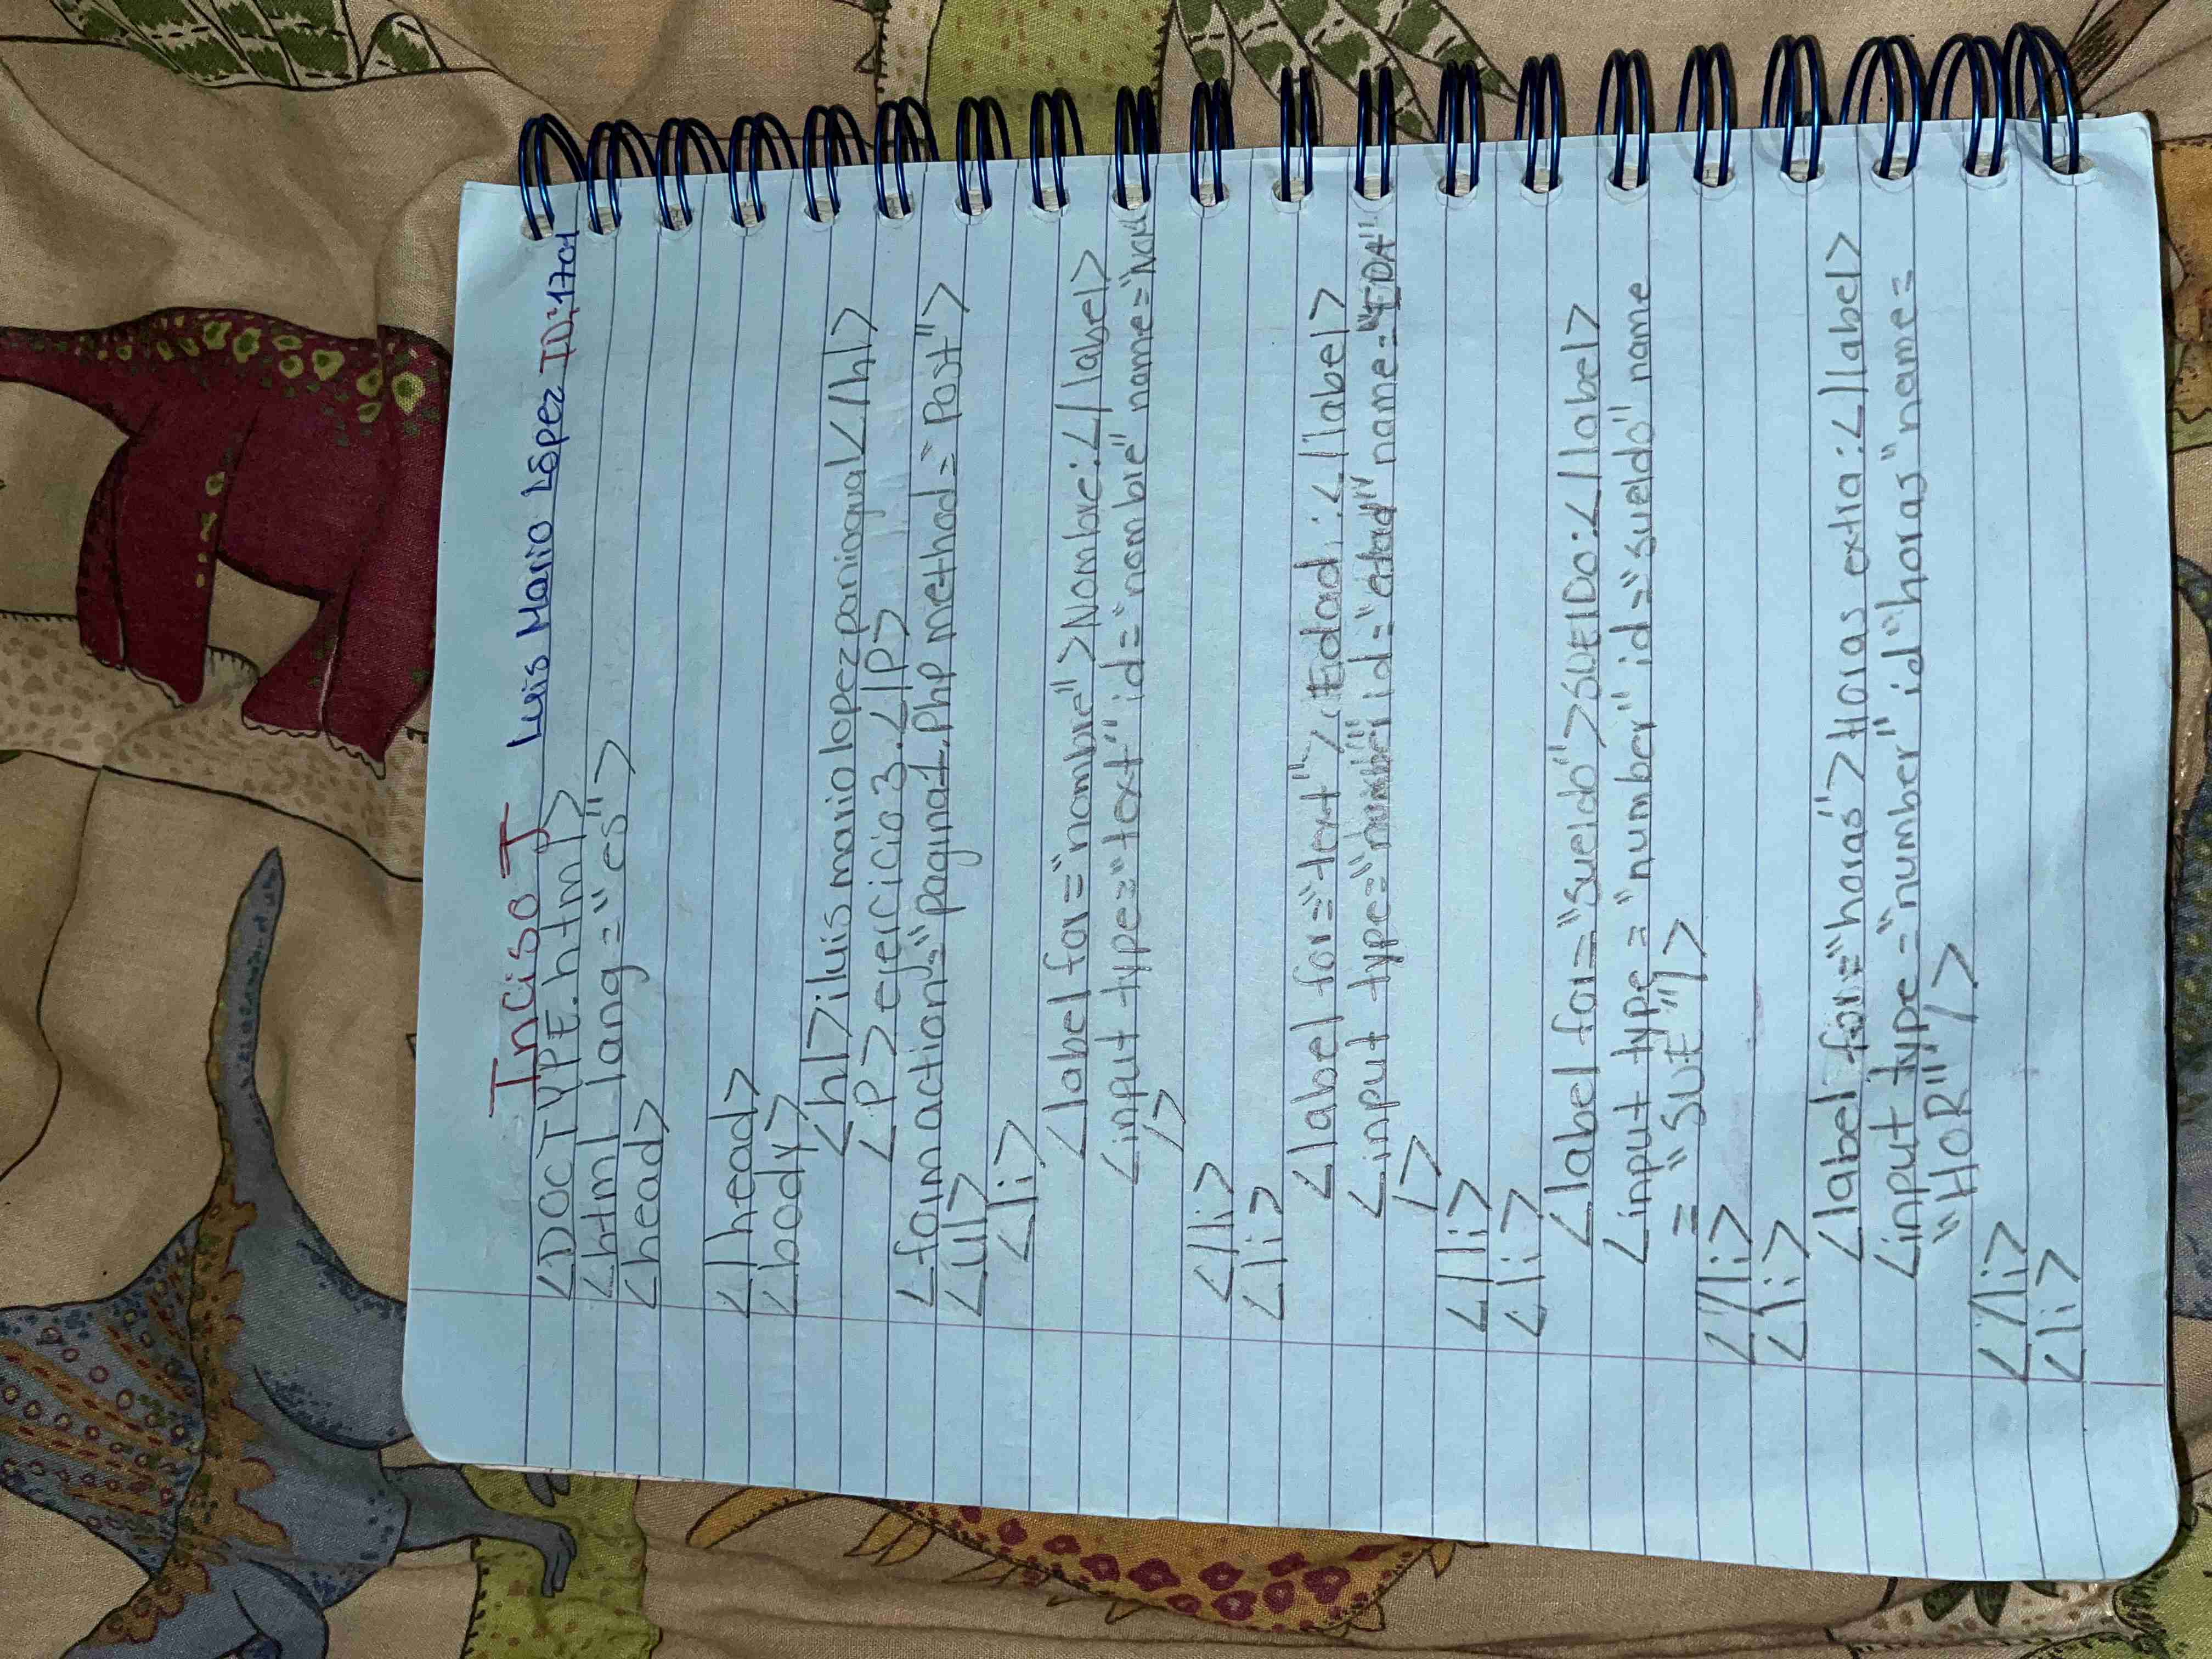 Inciso I Luis Mario López ID:1701
<DOCTYPE.html>
<html lang="es">
<head>
</head>
<body>
<h1>iluis mario lopez paniagua</h1>
<P>ejercicio 3.</P>
<form action="pagina1.php method="Post">
<ul>
<li>
<label for="nombre">Nombre:</label>
<input type="text" id="nombre" name="NOM
/>
</li>
<li>
<label for="text">Edad:</label>
<input type="number" id="edad" name="EDA"
/>
</li>
<li>
<label for="sueldo">SUELDO:</label>
<input type="number" id="sueldo" name
="SUE"/>
</li>
<li>
<label for="horas">Horas extra:</label>
<input type="number" id"horas" name=
"HOR"/>
</li>
<li>